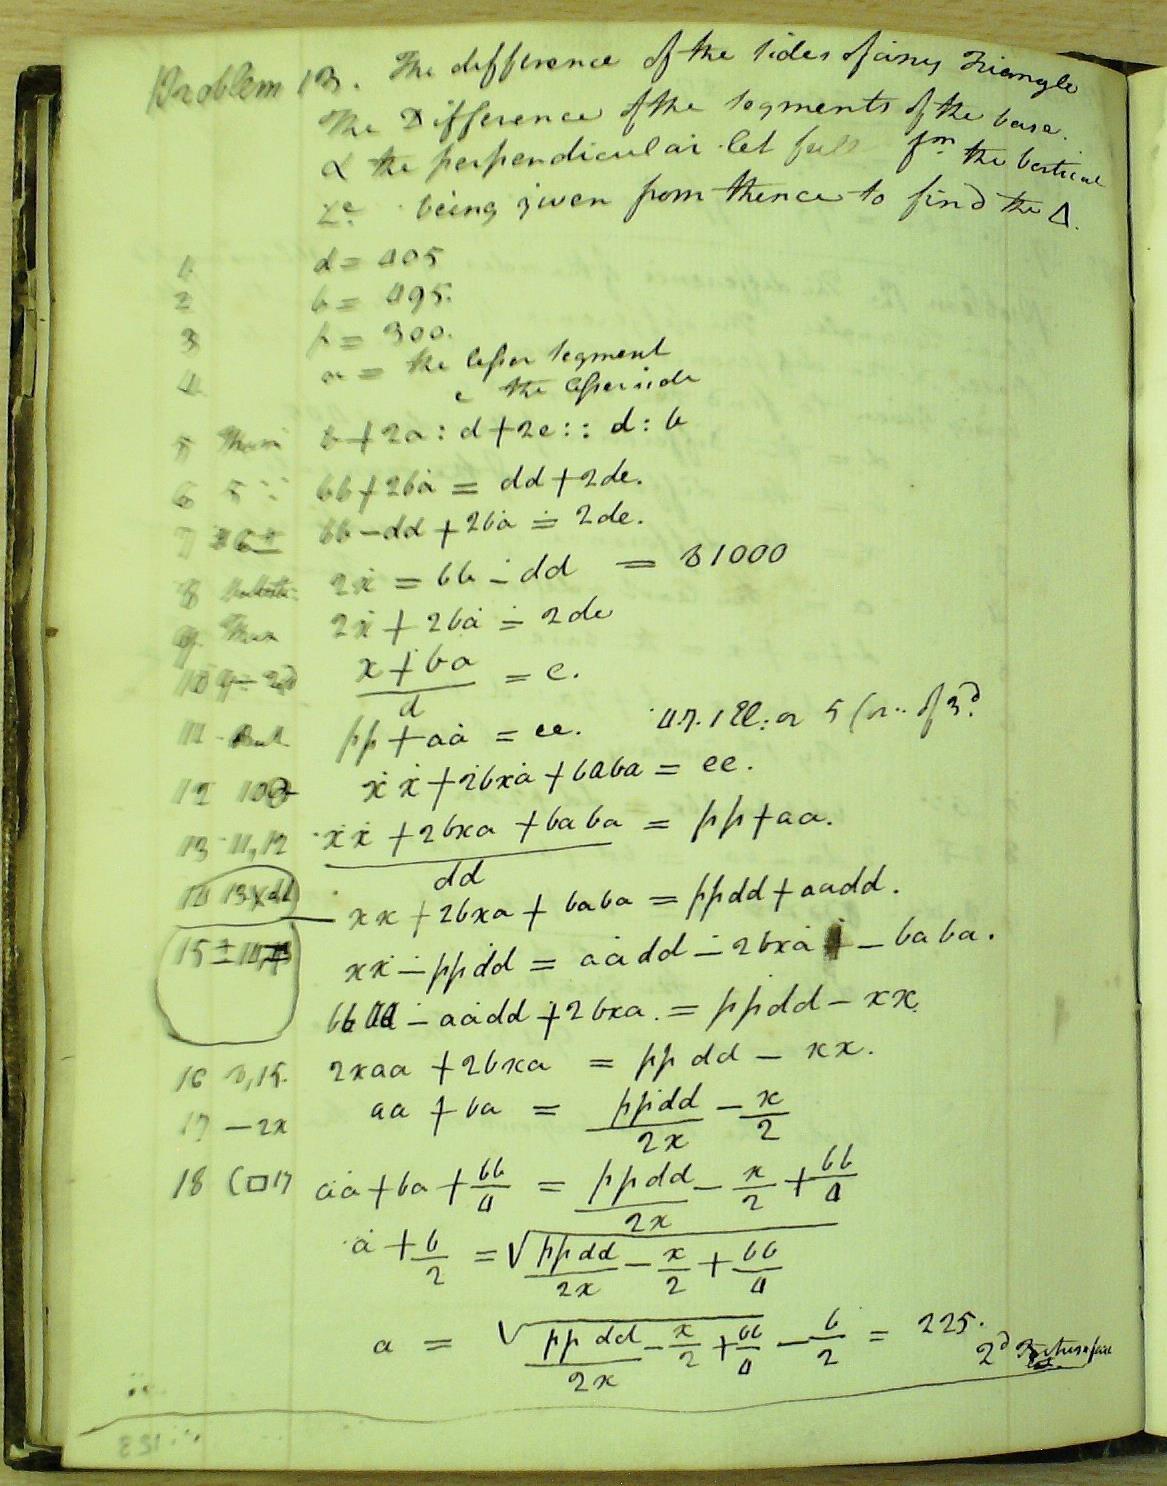 Problem 13. The difference of the sides of any Triangle
The Difference of the segments of the base.
& the perpendicular let fall from the Vertical
Le. being given from thence to find the Δ.
1 d = 405
2 b = 495.
3 p = 300.
4 a = the lesser segment
e the lesser side
5 Then b + 2a : d + 2e :: d : b
6 5 ∵ bb + 2ba = dd + 2de.
7 6 ± bb - dd + 2ba = 2de.
8 2x = bb - dd = 81000
9 Then 2x + 2ba = 2de
10 x + ba / d = e.
11 But pp + aa = ee. 47. 1 El: or 5 of 3d
12 10 xx + 2bxa + baba = ee.
13 11,12 xx + 2bxa + baba / dd = pp + aa.
14 13×dd xx + 2bxa + baba = ppdd + aadd.
15 ± 14 xx - ppdd = aadd - 2bxa - baba.
bbaa - aadd + 2bxa. = ppdd - xx.
16 8,15. 2xaa + 2bxa = ppdd - xx.
17 - 2x aa + ba = ppdd / 2x - x / 2
18 C□17 aa + ba + bb / 4 = ppdd / 2x - x / 2 + bb / 4
a + b / 2 = √ ppdd / 2x - x / 2 + bb / 4
a = √ ppdd / 2x - x / 2 + bb / 4 - b / 2 = 225.
2d